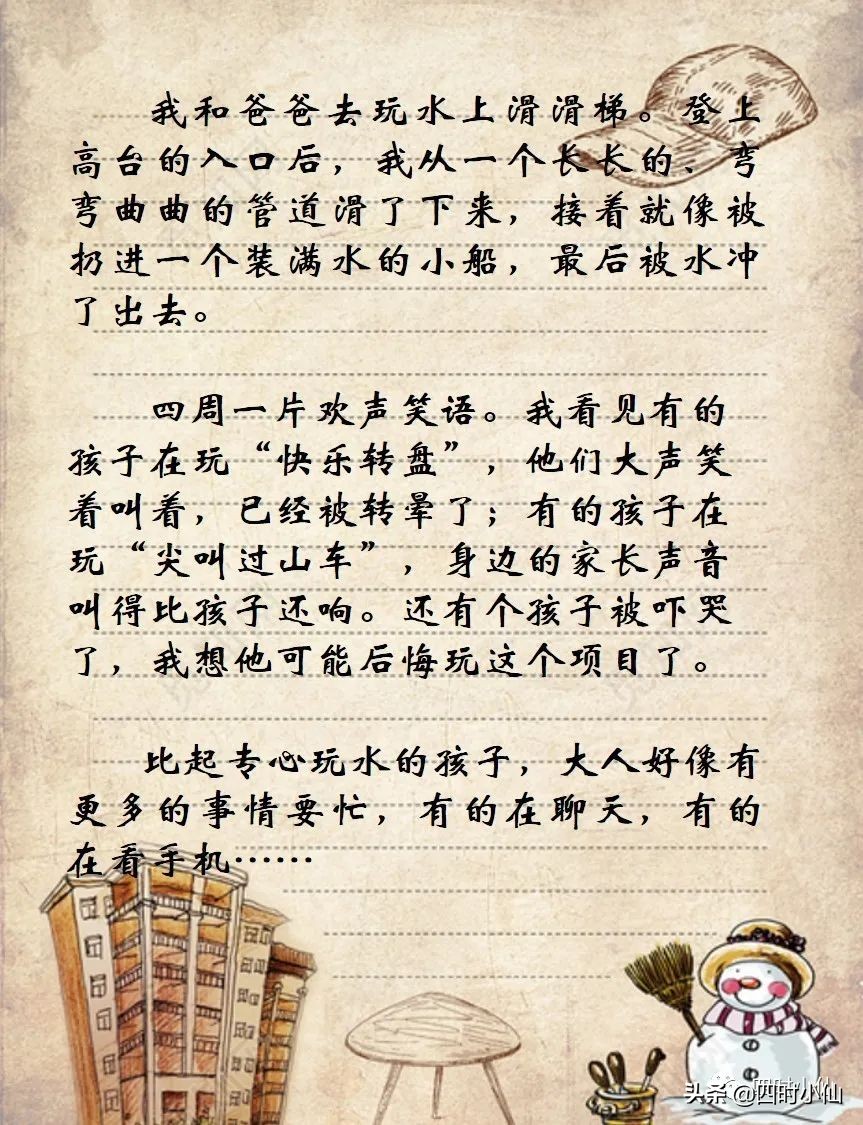 我和爸爸去玩水上滑滑梯。登上
高台的入口后，我从一个长长的、弯
弯曲曲的管道滑了下来，接着就像被
扔进一个装满水的小船，最后被水冲
了出去。
四周一片欢声笑语。我看见有的
孩子在玩“快乐转盘”，他们大声笑
着叫着，已经被转晕了；有的孩子在
玩“尖叫过山车”，身边的家长声音
叫得比孩子还响。还有个孩子被吓哭
了，我想他可能后悔玩这个项目了。
比起专心玩水的孩子，大人好像有
更多的事情要忙，有的在聊天，有的
在看手机……
头条 @四时小仙